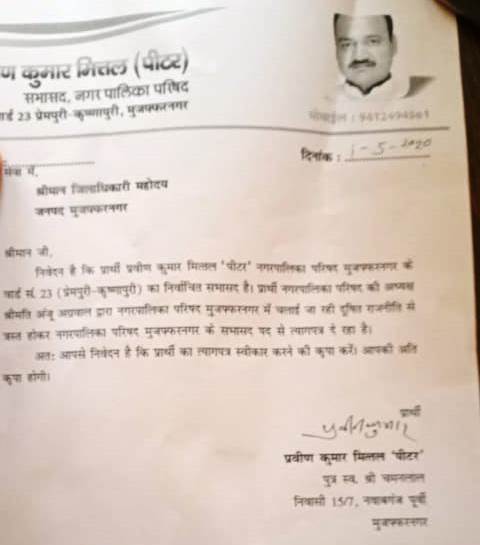 ण कुमार मित्तल (पीटर)
सभासद, नगर पालिका परिषद
वार्ड 23 प्रेमपुरी-कृष्णापुरी, मुजफ्फरनगर
मोबाईल : 9412494561
दिनांक : 1-5-2020
सेवा में,
श्रीमान जिलाधिकारी महोदय
जनपद मुजफ्फरनगर
श्रीमान जी,
निवेदन है कि प्रार्थी प्रवीण कुमार मित्तल 'पीटर' नगरपालिका परिषद मुजफ्फरनगर के
वार्ड सं. 23 (प्रेमपुरी-कृष्णापुरी) का निर्वाचित सभासद है। प्रार्थी नगरपालिका परिषद की अध्यक्ष
श्रीमति अंजू अग्रवाल द्वारा नगरपालिका परिषद मुजफ्फरनगर में चलाई जा रही दूषित राजनीति से
त्रस्त होकर नगरपालिका परिषद मुजफ्फरनगर के सभासद पद से त्यागपत्र दे रहा है।
अतः आपसे निवेदन है कि प्रार्थी का त्यागपत्र स्वीकार करने की कृपा करें। आपकी अति
कृपा होगी।
प्रार्थी
प्रवीनकुमार
प्रवीण कुमार मित्तल 'पीटर'
पुत्र स्व. श्री चमनलाल
निवासी 15/7, नवाबगंज पूर्वी
मुजफ्फरनगर